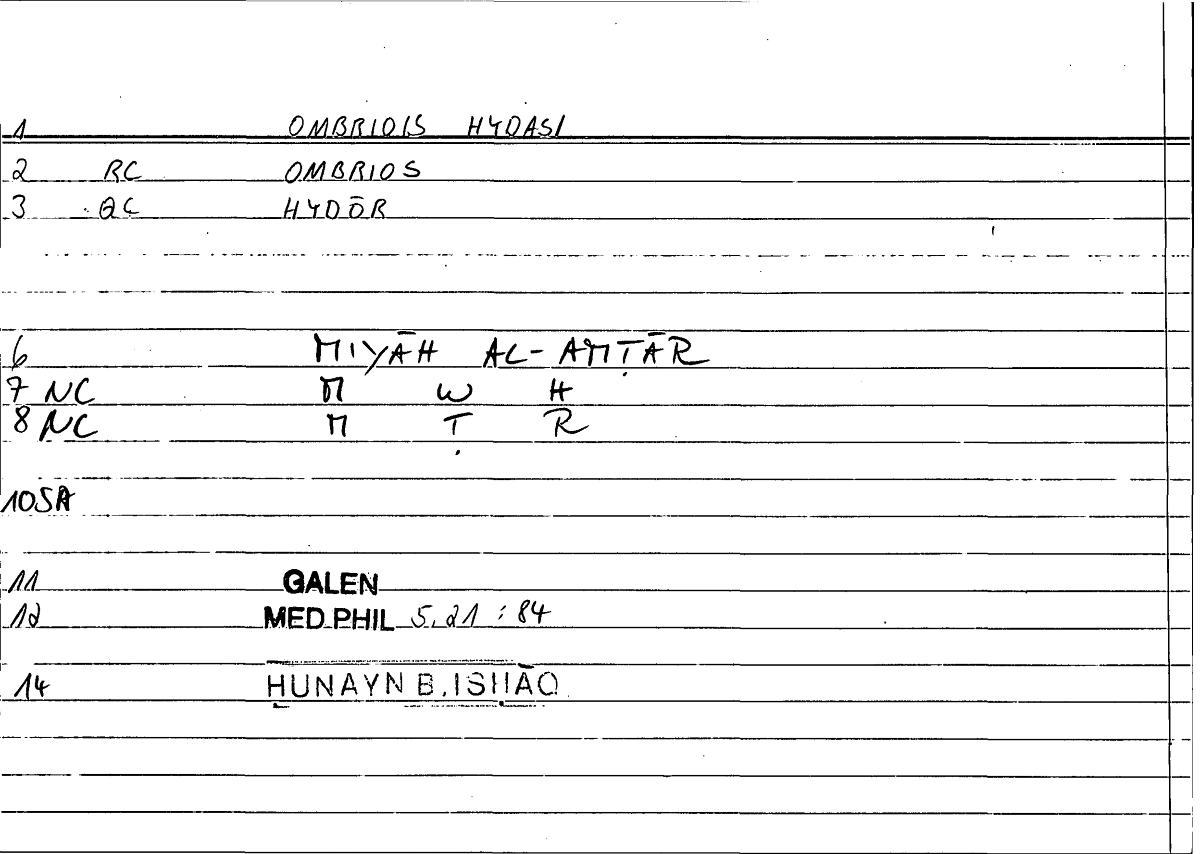 1 OMBRIOIS HYDASI
2 RC OMBRIOS
3 QC HYDŌR
6 MIYĀH AL-AMṬĀR
7 NC M W H
8 NC M Ṭ R
10 SA
11 GALEN
12 MED PHIL 5,21 : 84
14 ḤUNAYN B. ISḤĀQ